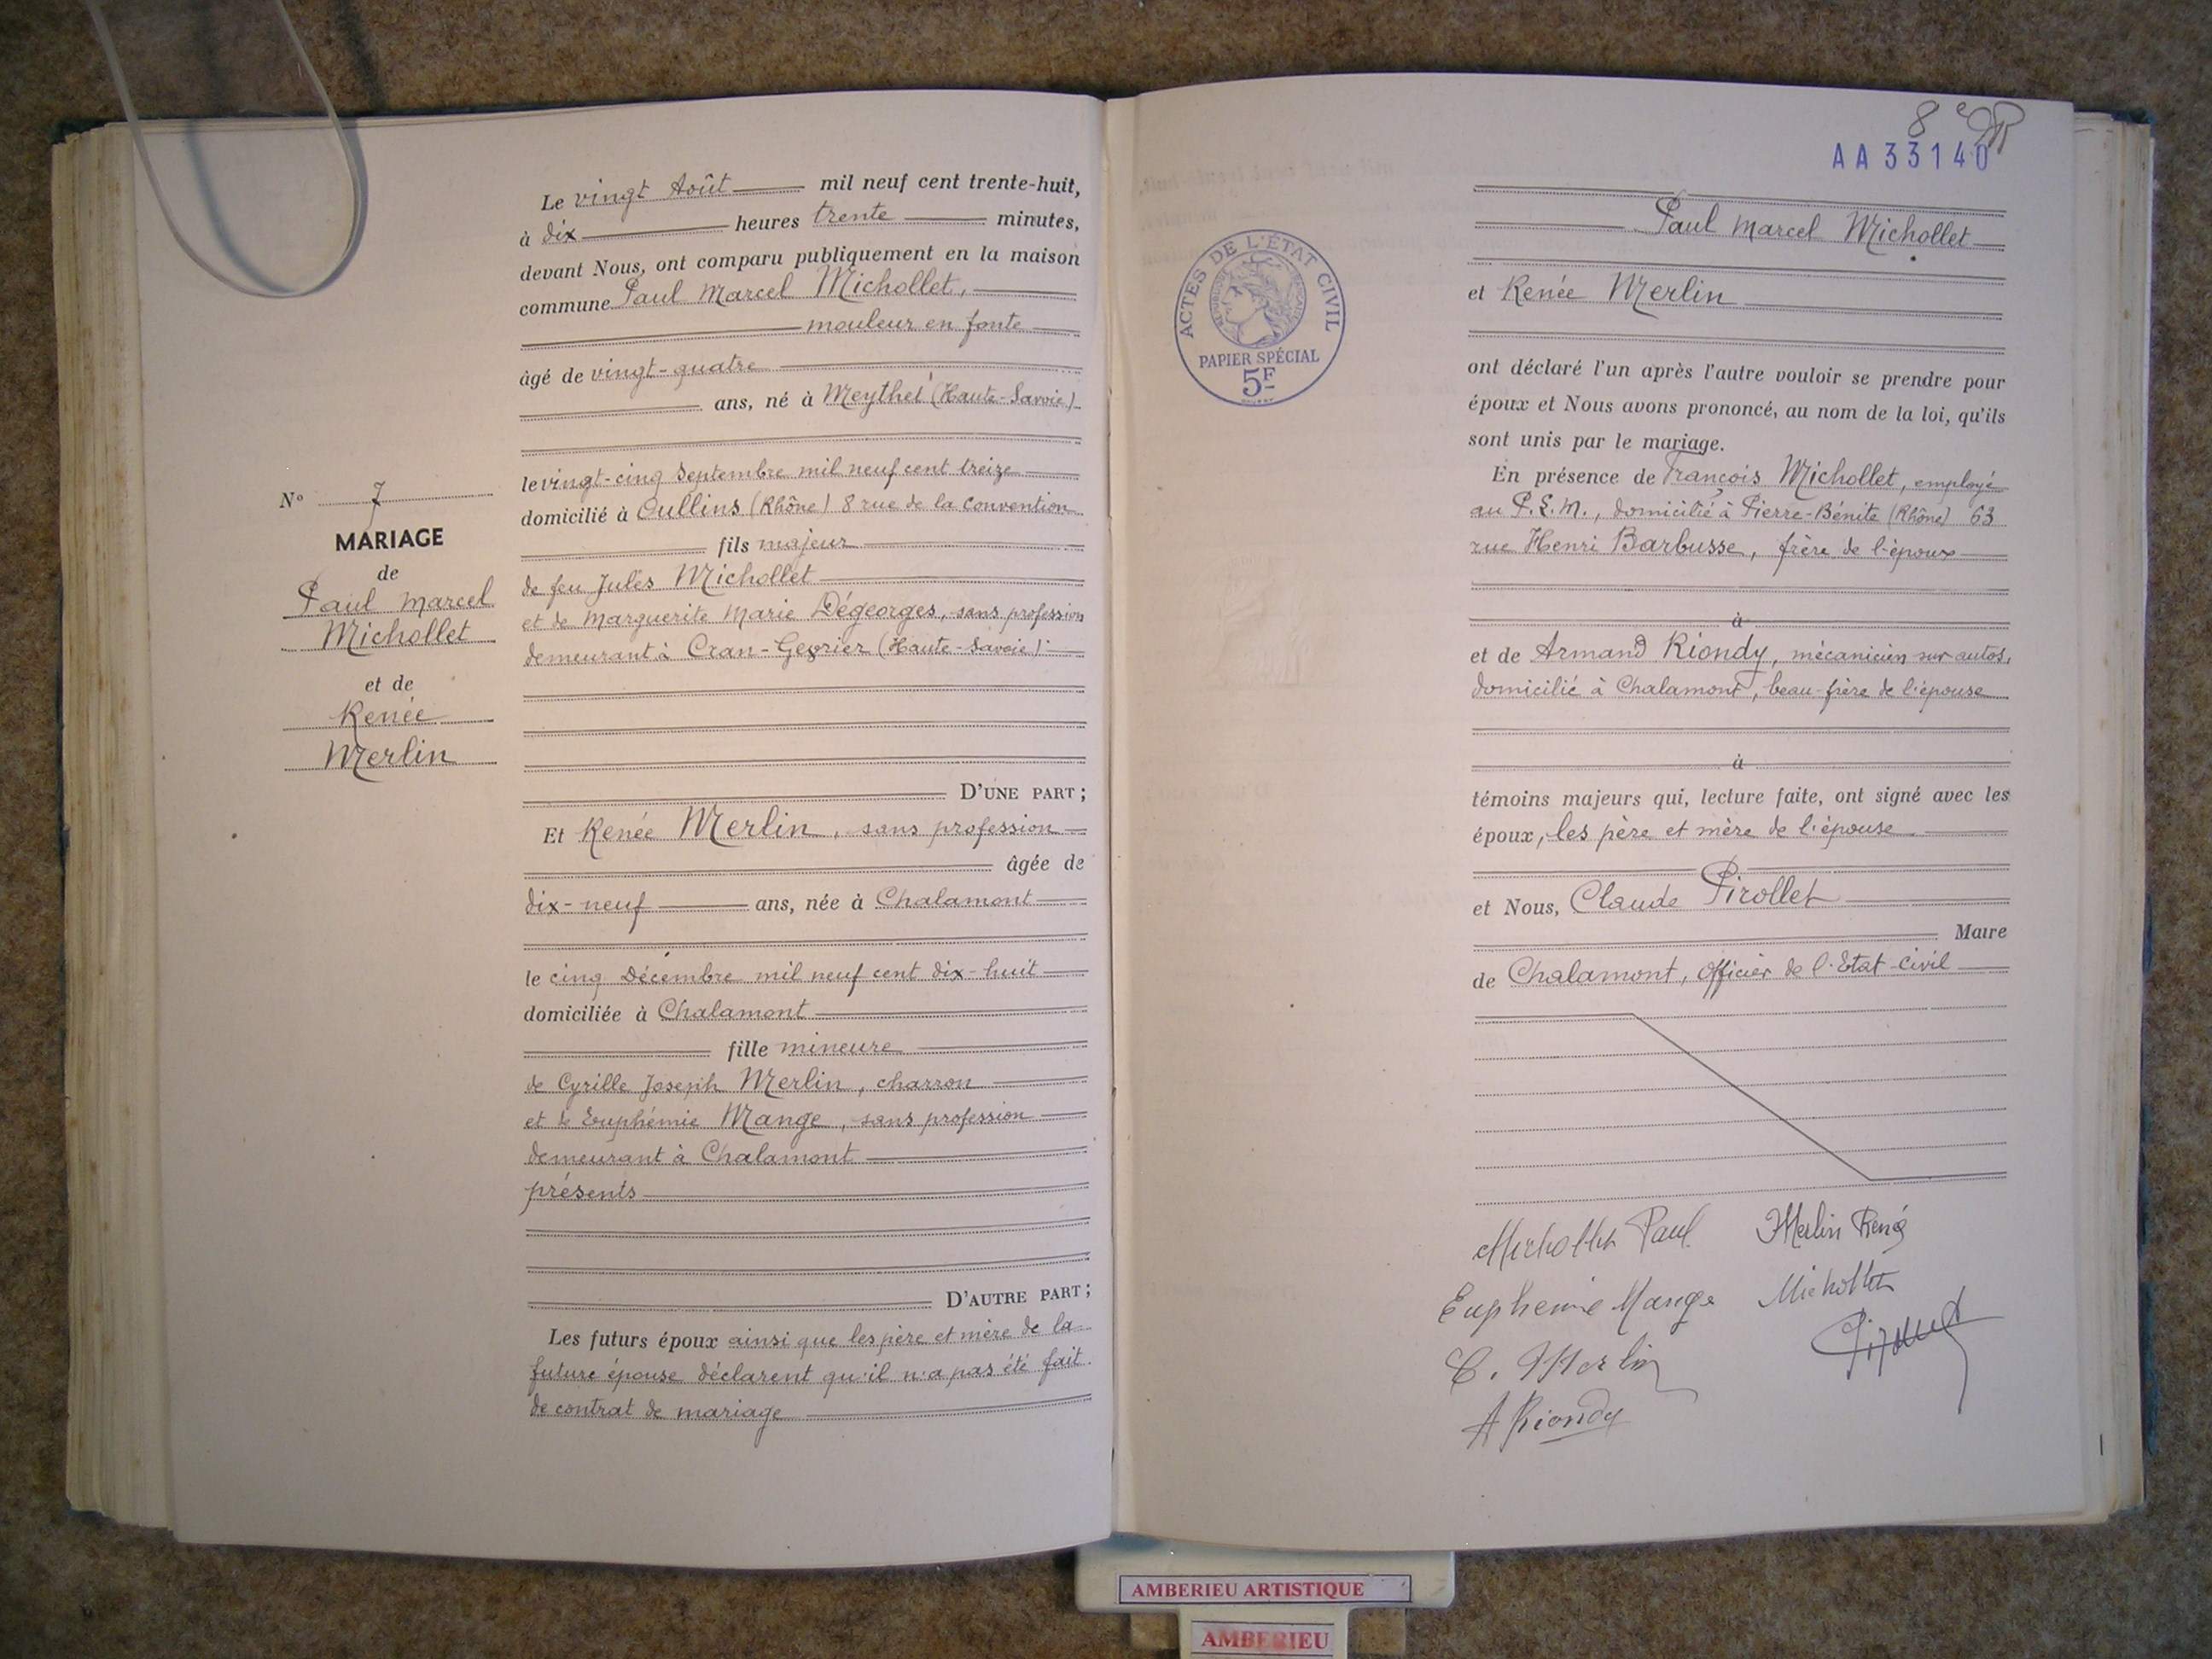 Le vingt Août mil neuf cent trente-huit,
à dix heures trente minutes,
devant Nous, ont comparu publiquement en la maison
commune Paul Marcel Michollet,
mouleur en fonte
âgé de vingt-quatre
ans, né à Meythet (Haute-Savoie)
le vingt-cinq Septembre mil neuf cent treize
domicilié à Oullins (Rhône) 8 rue de la Convention
fils majeur
de feu Jules Michollet
et de Marguerite Marie Dégeorges, sans profession
demeurant à Cran-Gevrier (Haute-Savoie)
N° 7
MARIAGE
de
Paul Marcel
Michollet
et de
Renée
Merlin
D'UNE PART;
Et Renée Merlin, sans profession
âgée de
dix-neuf ans, née à Chalamont
le cinq Décembre mil neuf cent dix-huit
domiciliée à Chalamont
fille mineure
de Cyrille Joseph Merlin, charron
et de Euphémie Mange, sans profession
demeurant à Chalamont
présents
D'AUTRE PART;
Les futurs époux ainsi que les père et mère de la
future épouse déclarent qu'il n'a pas été fait
de contrat de mariage
8
AA33140
ACTES DE L'ÉTAT CIVIL
RÉPUBLIQUE FRANÇAISE
PAPIER SPÉCIAL
5F
Paul Marcel Michollet
et Renée Merlin
ont déclaré l'un après l'autre vouloir se prendre pour
époux et Nous avons prononcé, au nom de la loi, qu'ils
sont unis par le mariage.
En présence de François Michollet, employé
au P.L.M., domicilié à Pierre-Bénite (Rhône) 63
rue Henri Barbusse, frère de l'époux
à
et de Armand Riondy, mécanicien sur autos,
domicilié à Chalamont, beau-frère de l'épouse
à
témoins majeurs qui, lecture faite, ont signé avec les
époux, les père et mère de l'épouse
et Nous, Claude Pirollet
Maire
de Chalamont, Officier de l'Etat-Civil
Michollet Paul Merlin Renée
Euphemie Mange Michollet
C. Merlin Pirollet
A Riondy
AMBERIEU ARTISTIQUE
AMBERIEU